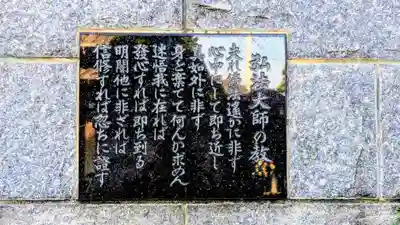 弘法大師の教
夫れ佛法遥かに非ず
心中にして即ち近し
真如外に非ず
身を棄てて何んか求めん
迷悟我に在れば
發心すれば即ち到る
明闇他に非ざれば
信修すれば忽ちに證す